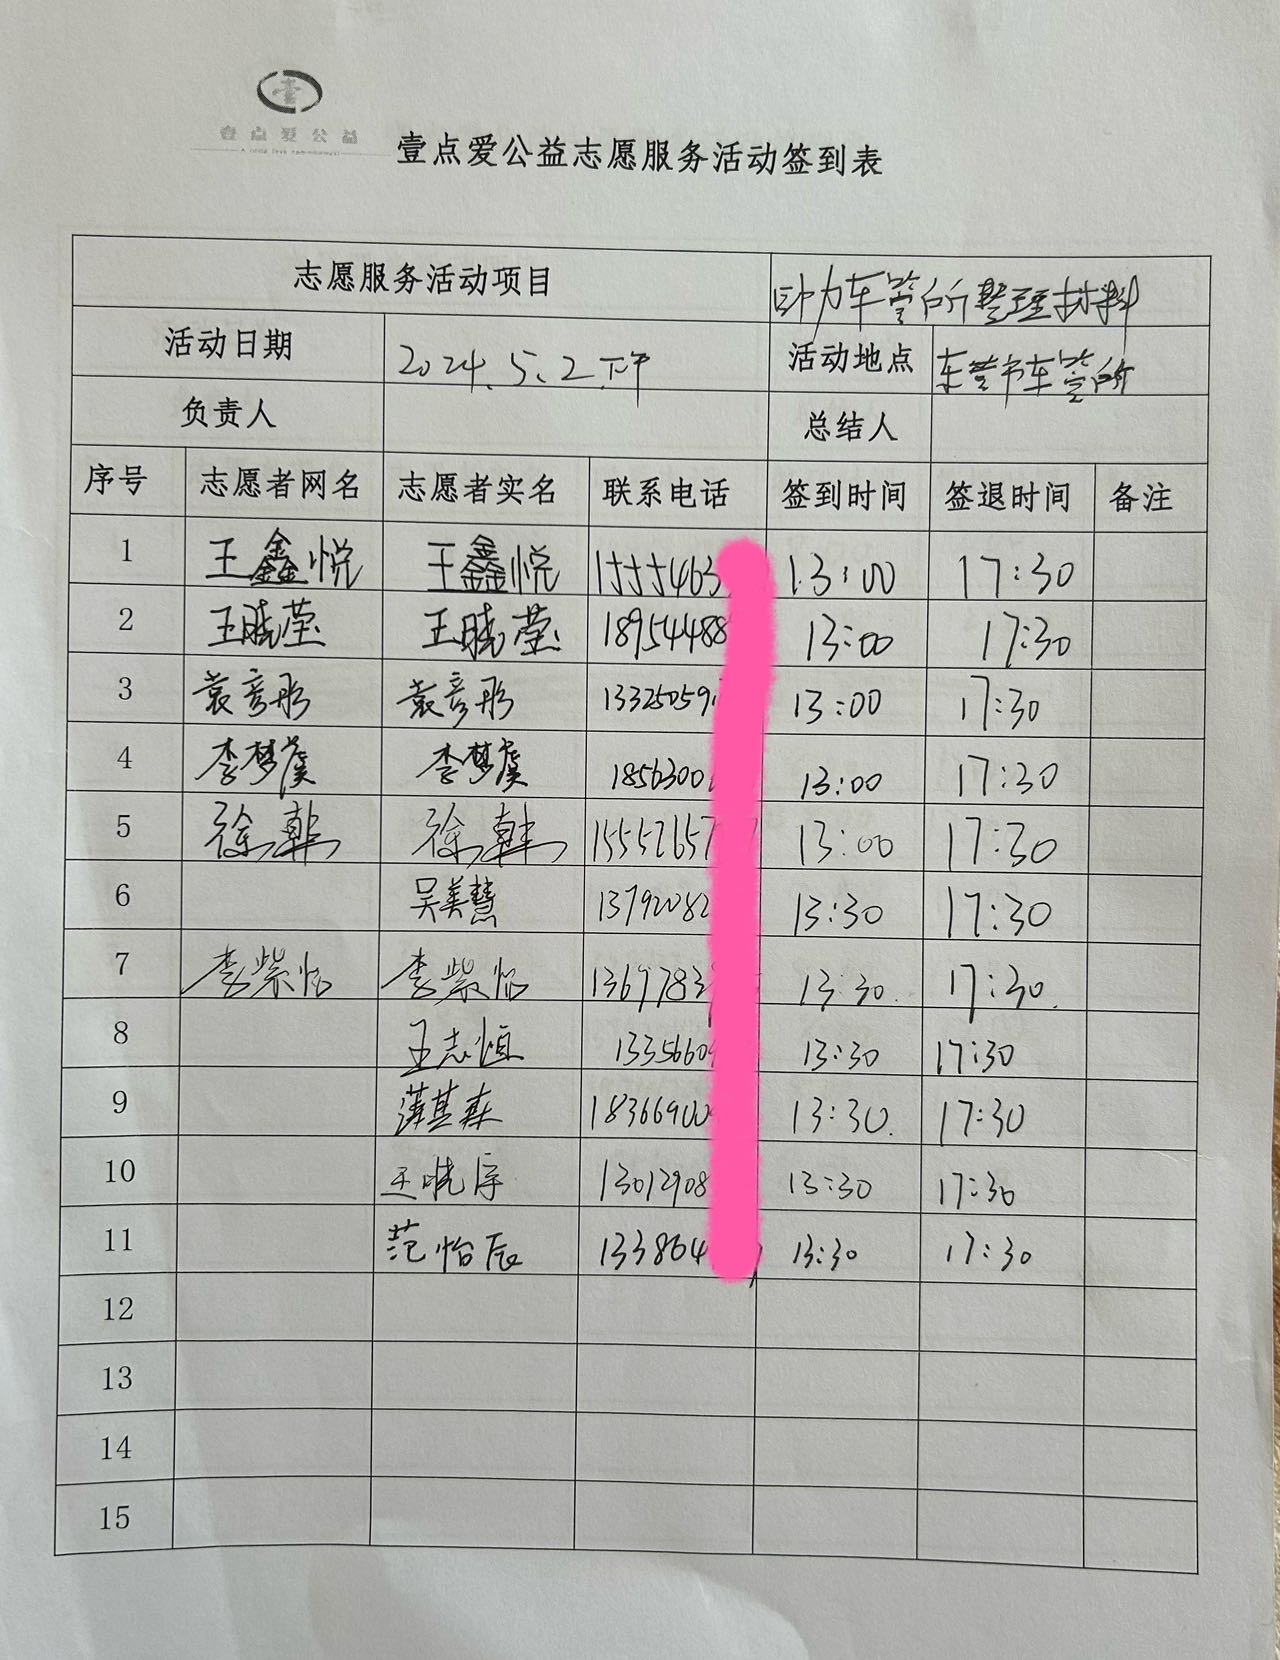 壹点爱公益
壹点爱公益志愿服务活动签到表
志愿服务活动项目 助力车管所整理材料
活动日期 2024.5.2.下午 活动地点 东营市车管所
负责人 总结人
序号 志愿者网名 志愿者实名 联系电话 签到时间 签退时间 备注
1 王鑫悦 王鑫悦 1555463 13:00 17:30
2 王晓莹 王晓莹 18954488 13:00 17:30
3 袁彦彤 袁彦彤 13325059 13:00 17:30
4 李梦虞 李梦虞 1856300 13:00 17:30
5 徐韩 徐韩 15552657 13:00 17:30
6 吴美慧 13792082 13:30 17:30
7 李紫怡 李紫怡 1369783 13:30. 17:30.
8 王志恒 1335660 13:30 17:30
9 薄其森 18366900 13:30. 17:30
10 王晓淳 13012908 13:30 17:30
11 范怡辰 133864 13:30 17:30
12
13
14
15